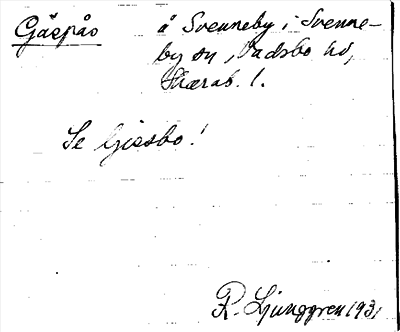 Gåspås å Svenneby i Svenne-
by sn, Vadsbo hd,
Skarab. l.
Se Gissbo!
R. Ljunggren 1931